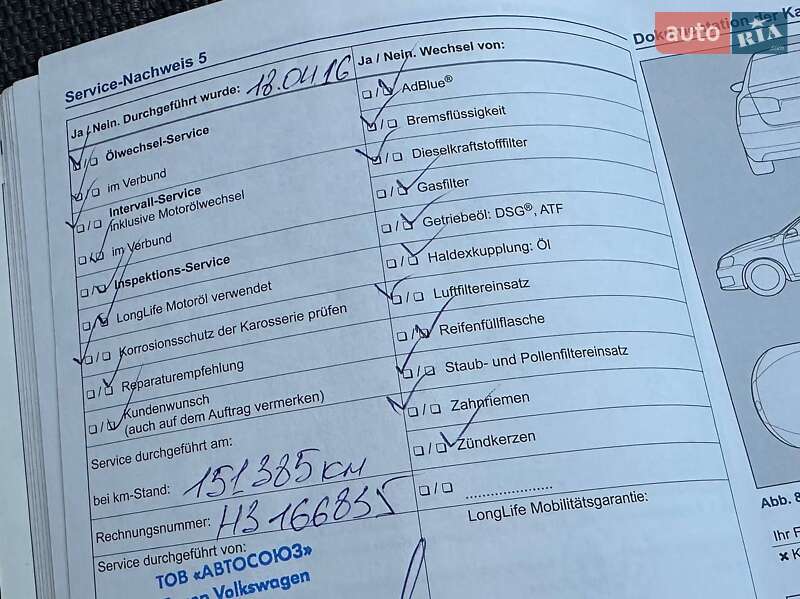 Service-Nachweis 5
Ja / Nein. Durchgeführt wurde: 18.04.16
Ölwechsel-Service
im Verbund
Intervall-Service
inklusive Motorölwechsel
im Verbund
Inspektions-Service
LongLife Motoröl verwendet
Korrosionsschutz der Karosserie prüfen
Reparaturempfehlung
Kundenwunsch
(auch auf dem Auftrag vermerken)
Service durchgeführt am:
bei km-Stand: 151385 км
Rechnungsnummer: НЗ 166835
Service durchgeführt von:
ТОВ «АВТОСОЮЗ»
Volkswagen
Ja / Nein. Wechsel von:
AdBlue®
Bremsflüssigkeit
Dieselkraftstofffilter
Gasfilter
Getriebeöl: DSG®, ATF
Haldexkupplung: Öl
Luftfiltereinsatz
Reifenfüllflasche
Staub- und Pollenfiltereinsatz
Zahnriemen
Zündkerzen
LongLife Mobilitätsgarantie:
der Ka
Abb. 8
Ihr F
auto RIA
.com